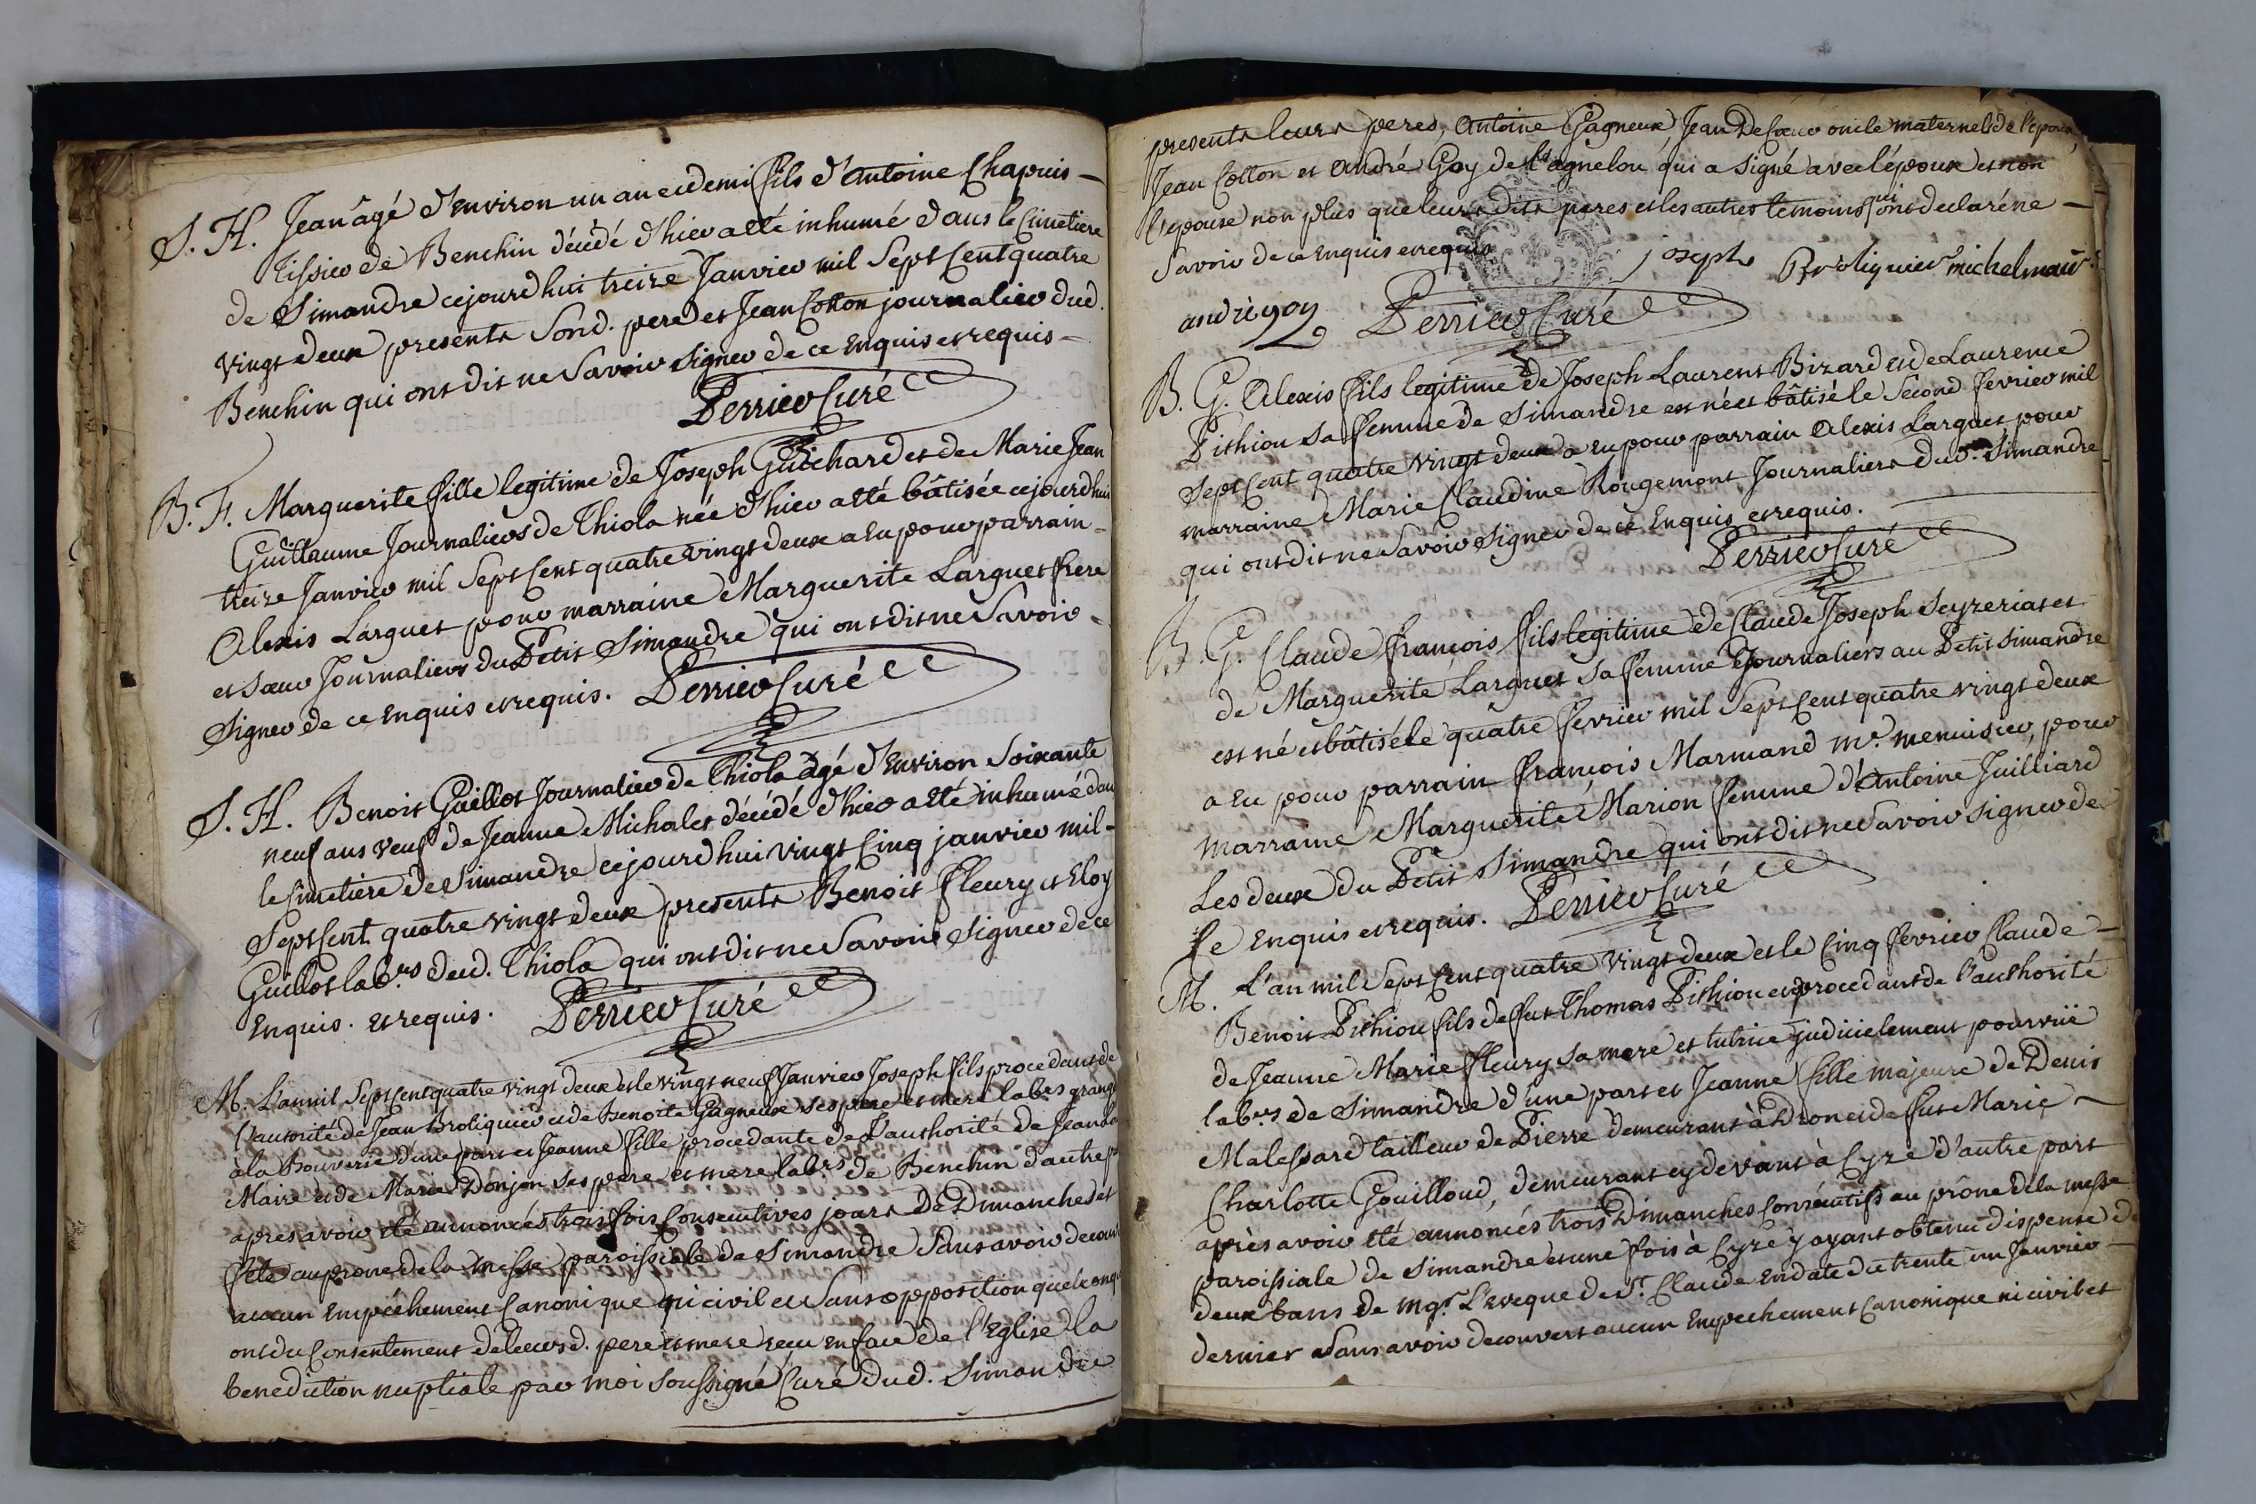 S. H. Jean âgé d'Environ un an et demi fils d'Antoine Chapuis –
Tissier de Benchin décédé d'hier a été inhumé dans le Cimetiere
de Simandre cejourdhui treize Janvier mil Sept Cent quatre
vingt deux presents Sond. pere et Jean Cotton journalier dud.
Benchin qui ont dit ne Savoir Signer de ce Enquis et requis –
Perrier Curé
B. F. Marguerite fille legitime de Joseph Guichard et de Marie Jean
Guillaume Journaliers de Thiola née d'hier a été bâtisée cejourdhui
treize Janvier mil Sept Cent quatre vingt deux a Eu pour parrain –
Alexis Larguet pour marraine Marguerite Larguet frere
et Sœur Journaliers du Petit Simandre qui ont dit ne Savoir –
Signer de ce Enquis et requis. Perrier Curé
S. H. Benoit Guillot Journalier de Thiola âgé d'Environ Soixante
neuf ans veuf de Jeanne Michalet décédé d'hier a été inhumé dans
le Cimetiere de Simandre cejourdhui vingt Cinq janvier mil –
Sept Cent quatre vingt deux presents Benoit fleury et Eloy
Guillot labrs dud. Thiola qui ont dit ne Savoir Signer de ce
Enquis. et requis. Perrier Curé
M. L'an mil Sept Cent quatre vingt deux et le vingt neuf Janvier Joseph fils procedant de
l'autorité de Jean Broliquier et de Benoite Gagneux ses pere et mere labrs grange
à la Bouverie d'une part et Jeanne fille procedante de l'authorité de Jean
Maire et de Marie Donjon ses pere et mere labrs de Benchin d'autre
après avoir été annoncés trois fois Consecutives jours de Dimanches et
fete au prone de la Messe paroissiale de Simandre Sans avoir decouvert
aucun Empêchement Canonique ni civil et Sans opposition quelconque
ont du Consentement de leursd. pere et mere reçu en face de l'Eglise la
benediction nuptiale par moi Soussigné Curé dud. Simandre
presents leurs peres, Antoine Gagneux, Jean oncle maternel de l'epoux,
Jean Cotton et André Goy de qui a signé avec l'époux et non
l'epouse non plus que leurs dits peres et les autres temoins qui ont declaré ne –
Savoir de ce Enquis et requis joseph Broliquier michel mair
andré goy Perrier Curé
B. G. Alexis fils legitime de Joseph Laurent Bizard et de Laurence
Pithiou sa femme de Simandre est né et bâtisé le Second fevrier mil
Sept Cent quatre vingt deux a eu pour parrain Alexis Larguet pour
marraine Marie Claudine Rougemont Journaliers dud. Simandre
qui ont dit ne Savoir Signer de ce Enquis et requis.
Perrier Curé
B. G. Claude françois fils legitime de Claude Joseph Seyzeriat et
de Marguerite Larguet sa femme Journaliers au Petit Simandre
est né et bâtisé le quatre fevrier mil Sept Cent quatre vingt deux
a eu pour parrain françois Marmand me menuisier, pour
marraine Marguerite Marion femme d'Antoine Juilliard
Les deux du Petit Simandre qui ont dit ne Savoir signer de
Ce Enquis et requis. Perrier Curé
M. L'an mil Sept Cent quatre vingt deux et le Cinq fevrier Claude –
Benoit Pithiou fils de fut Thomas Pithiou et procedant de l'authorité
de Jeanne Marie fleury sa mere et tutrice judicielement pourvüe
labrs de Simandre d'une part et Jeanne fille majeure de Denis
Malessard tailleur de Pierre demeurant à Drom et de fut Marie –
Charlotte Gouilloud, demeurant cy devant à Cyze d'autre part
après avoir été annoncés trois Dimanches Consécutifs au prône de la messe
paroissiale de Simandre et une fois à Cyze y ayant obtenu dispense de
deux bans de mgr L'eveque de St Claude en date du trente un Janvier –
dernier Sans avoir decouvert aucun Empechement Canonique ni civil et